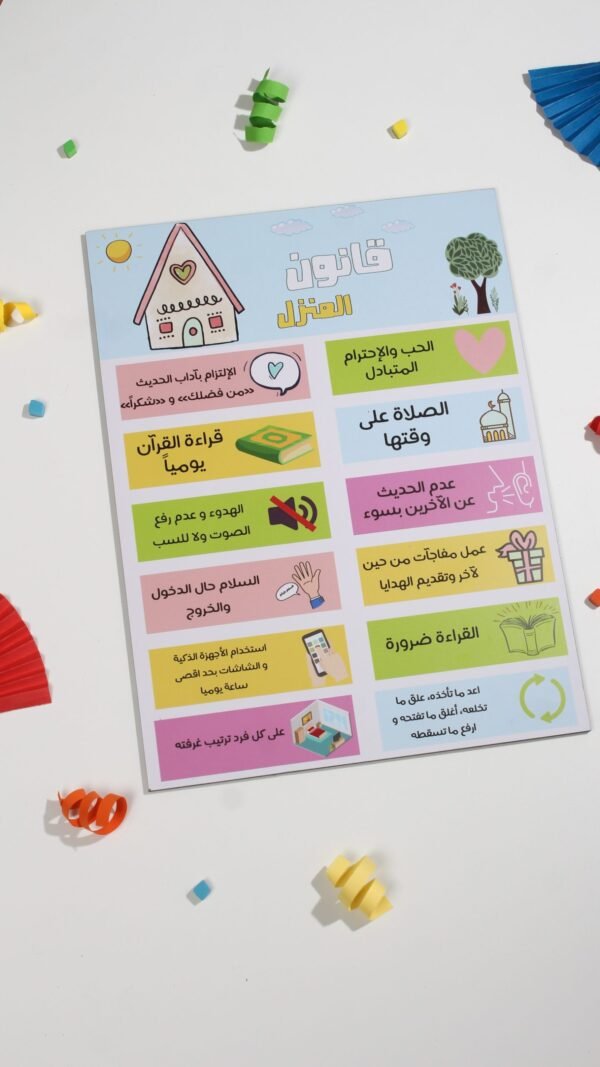 قانون
المنزل
الحب والإحترام
المتبادل
الإلتزام بآداب الحديث
«من فضلك» و «شكراً»
الصلاة على
وقتها
قراءة القرآن
يومياً
عدم الحديث
عن الآخرين بسوء
الهدوء و عدم رفع
الصوت ولا للسب
عمل مفاجآت من حين
لآخر وتقديم الهدايا
السلام حال الدخول
والخروج
القراءة ضرورة
استخدام الأجهزة الذكية
و الشاشات بحد اقصى
ساعة يوميا
اعد ما تأخذه، علق ما
تخلعه، أغلق ما تفتحه و
ارفع ما تسقطه
على كل فرد ترتيب غرفته